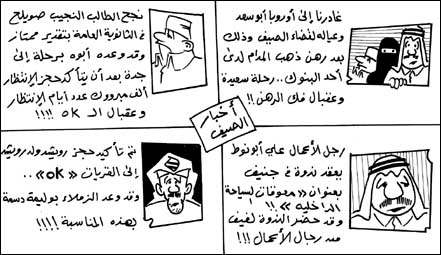 أخبار
الصيف
غادرنا إلى أوروبا أبو سعد
وعياله لقضاء الصيف وذلك
بعد رهن ذهب المدام لدى
أحد البنوك.. رحلة سعيدة
وعقبال فك الرهن !!
نجح الطالب النجيب صويلح
في الثانوية العامة بتقدير ممتاز
وقد وعده أبوه برحلة إلى
جدة بعد أن يتأكد حجز الإنتظار
ألف مبروك عدد أيام الإنتظار
وعقبال الـ ok !!!!
رجل الأعمال علي أبو نوط
يعقد ندوة في جنيف
بعنوان «معوقات السياحة
الداخلية» !!
وقد حضر الندوة لفيف
من رجال الأعمال !!!
تم تأكيد حجز رويشد ولد رويشد
إلى القريات «ok»..
وقد وعد الزملاء بوليمة دسمة
بهذه المناسبة !!!!!